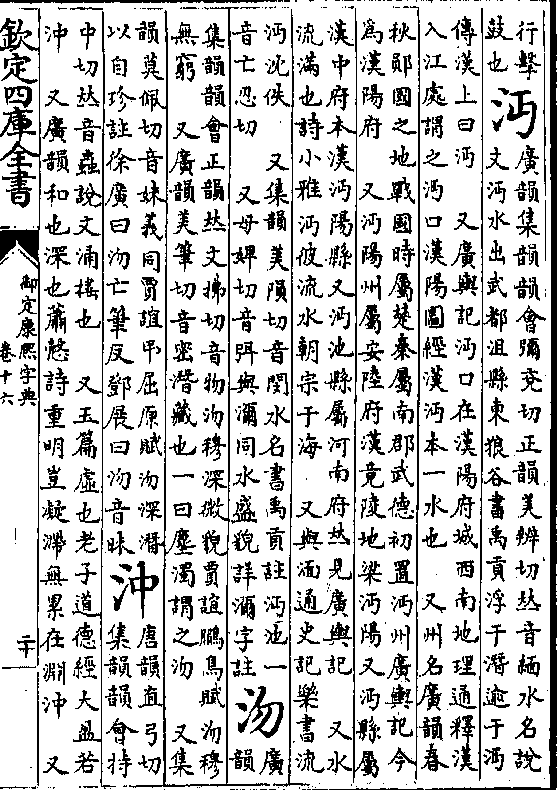 行擊
鼓也
沔
廣韻集韻韻會彌兗切正韻美辨切𠀤音緬水名說
文沔水出武都沮縣東狼谷書禹貢浮于潛逾于沔
傳漢上曰沔　又廣輿記沔口在漢陽府城西南地理通釋漢
入江處謂之沔口漢陽圖經漢沔本一水也　又州名廣韻春
秋鄖國之地戰國時屬楚秦屬南郡武德初置沔州廣輿記今
爲漢陽府　又沔陽州屬安陸府漢竟陵地梁沔陽又沔縣屬
漢中府本漢沔陽縣又沔池縣屬河南府𠀤見廣輿記　又水
流滿也詩小雅沔彼流水朝宗于海　又與湎通史記樂書流
沔沈佚　又集韻美隕切音閔水名書禹貢註沔池一
音亡忍切　又母婢切音弭與瀰同水盛貌詳瀰字註
沕
廣
韻
集韻韻會正韻𠀤文拂切音物沕穆深微貌賈誼鵩鳥賦沕穆
無窮　又廣韻美筆切音密潛藏也一曰塵濁謂之沕　又集
韻莫佩切音妹義同賈誼弔屈原賦沕深潛
以自珍註徐廣曰沕亡筆反鄧展曰沕音昧
沖
唐韻直弓切
集韻韻會持
中切𠀤音蟲說文涌搖也　又玉篇虛也老子道德經大盈若
沖　又廣韻和也深也蕭慤詩重明豈凝滯無累在淵沖　又
欽定四庫全書
御定康熙字典
卷十六
二十